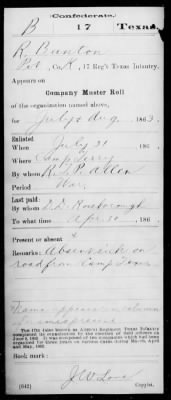 (Confederate.)
B 17 Texas.
R. Banton
Pvt, Co. K, 17 Reg't Texas Infantry.
Appears on
Company Muster Roll
of the organization named above,
for July & Aug, 1863.
Enlisted:
When July 31, 186
Where Camp Terry
By whom R. T. P. Allen
Period War
Last paid:
By whom D. D. Rosborough
To what time Apr 30, 186
Present or absent
Remarks: Absent sick on
road from Camp
Name appears in column
The 17th (also known as Allen's) Regiment Texas Infantry
Book mark:
J W Love
(642) Copyist.